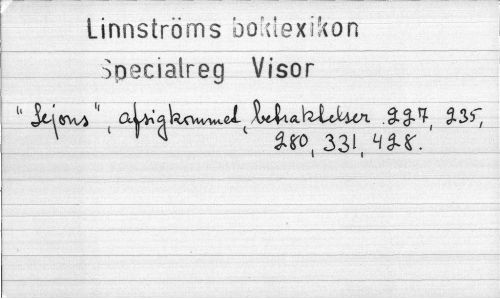 Linnströms boklexikon
Specialreg Visor
"Lejons", afsigkommet, betraktelser 227, 235,
280, 331, 428.